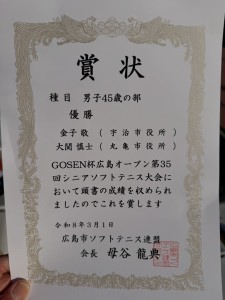 賞状
種目 男子45歳の部
優勝
金子 敬 ( 宇治市役所 )
大関 慎士 ( 丸亀市役所 )
GOSEN杯広島オープン第35
回シニアソフトテニス大会に
おいて頭書の成績を収められ
ましたのでこれを賞します
令和8年3月1日
広島市ソフトテニス連盟
会長 母谷 龍典